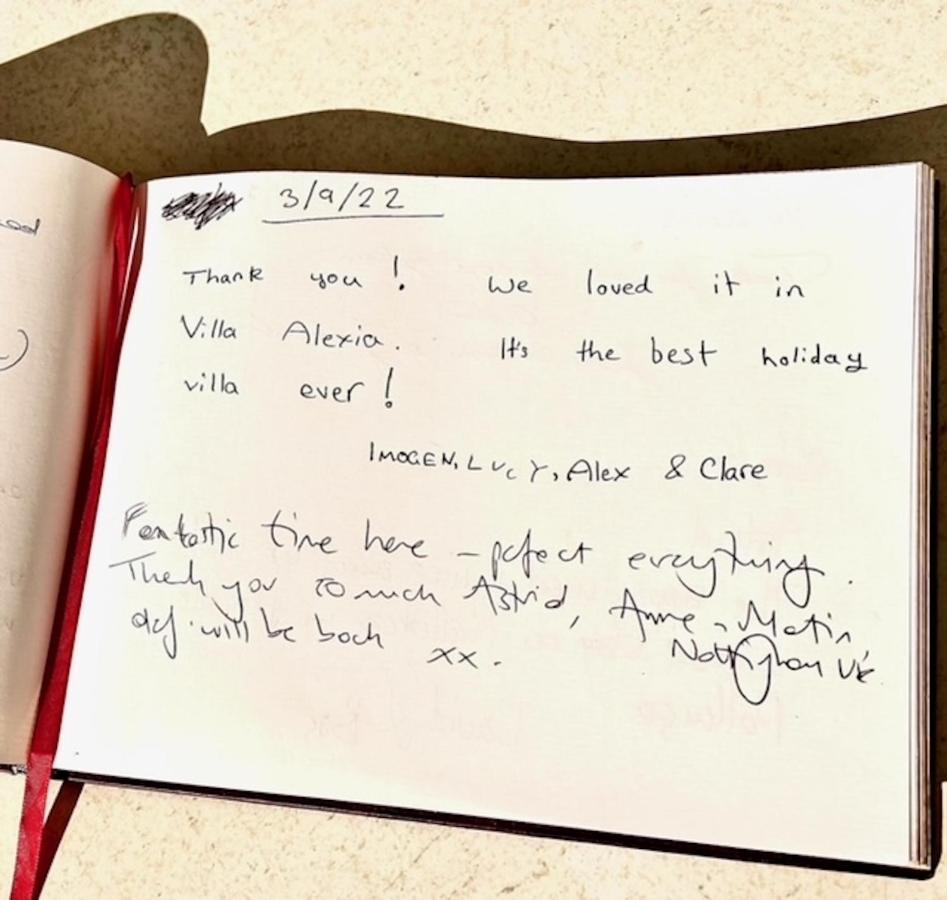 3/9/22
Thank you! We loved it in
Villa Alexia. It's the best holiday
villa ever!
IMOGEN, LUCY, Alex & Clare
Fantastic time here - pefect everything.
Thank you so much Astrid, Anne - Matin
def. will be back xx.
Nottingham UK